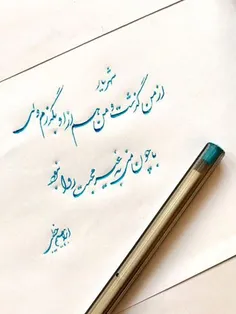 شهریار
از من گذشت و من هم از او بگذرم ولی
با چون منی بغیر محبت روا نبود